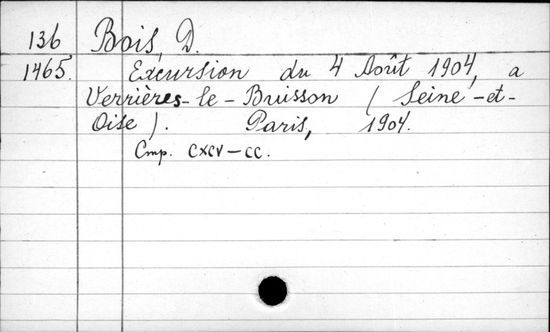 136 Bois, D.
1465. Excursion du 4 Août 1904, a
Verrières-le-Buisson (Seine-et-
Oise). Paris, 1904.
Cmp. CXCV-CC.